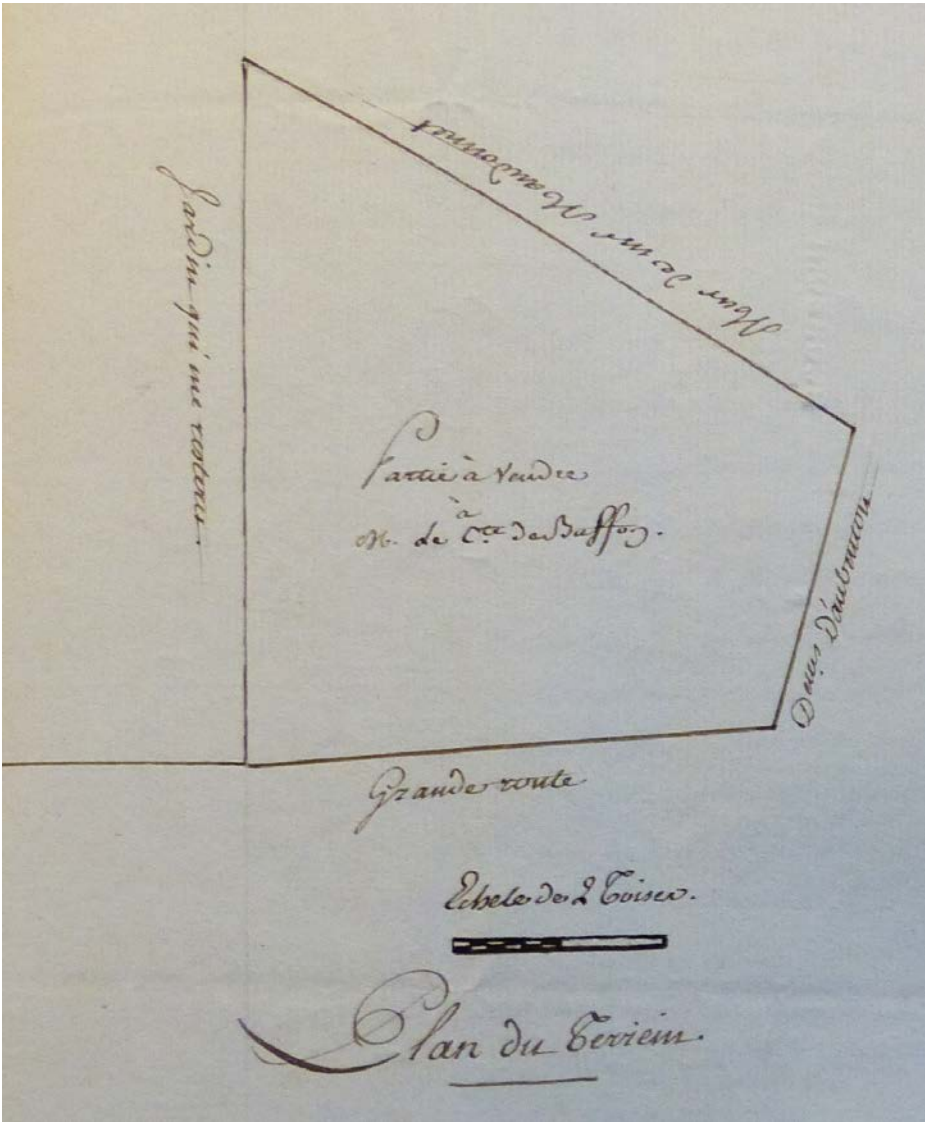 Jardin qui me restera.
Partie à Vendre
à
M. le Cte de Buffon.
Denis D'aubenton
Grande route
Echele de 2 Toises.
Plan du Terrein.